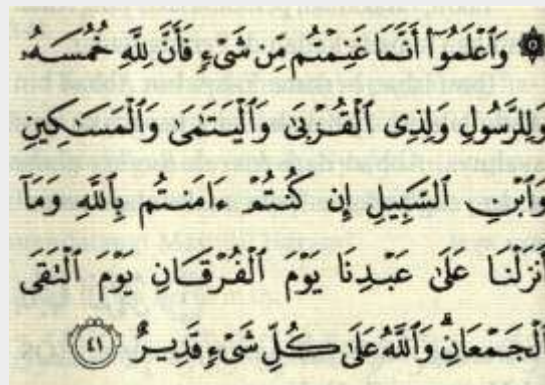 ۞ وَٱعْلَمُوٓا۟ أَنَّمَا غَنِمْتُم مِّن شَىْءٍ فَأَنَّ لِلَّهِ خُمُسَهُۥ
وَلِلرَّسُولِ وَلِذِى ٱلْقُرْبَىٰ وَٱلْيَتَـٰمَىٰ وَٱلْمَسَـٰكِينِ
وَٱبْنِ ٱلسَّبِيلِ إِن كُنتُمْ ءَامَنتُم بِٱللَّهِ وَمَآ
أَنزَلْنَا عَلَىٰ عَبْدِنَا يَوْمَ ٱلْفُرْقَانِ يَوْمَ ٱلْتَقَى
ٱلْجَمْعَانِ ۗ وَٱللَّهُ عَلَىٰ كُلِّ شَىْءٍ قَدِيرٌ ٤١